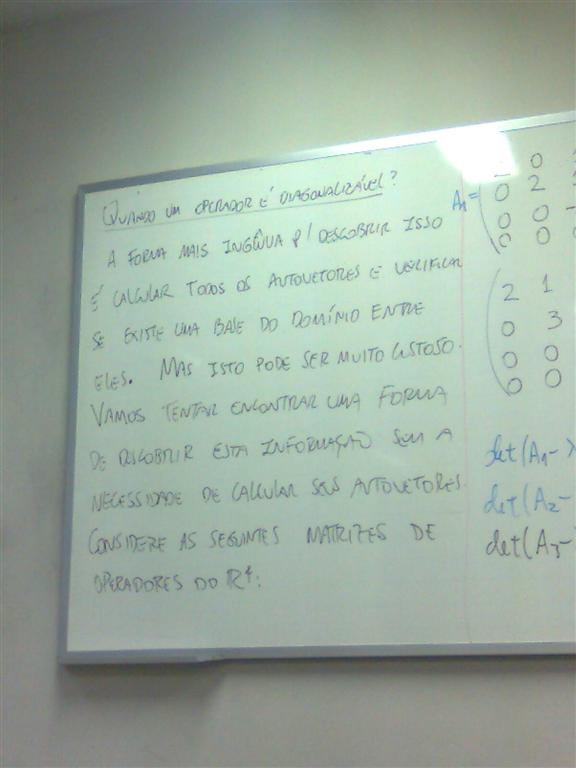 QUANDO UM OPERADOR É DIAGONALIZÁVEL?
A FORMA MAIS INGÊNUA P/ DESCOBRIR ISSO
É CALCULAR TODOS OS AUTOVETORES E VERIFICAR
SE EXISTE UMA BASE DO DOMÍNIO ENTRE
ELES. MAS ISTO PODE SER MUITO CUSTOSO.
VAMOS TENTAR ENCONTRAR UMA FORMA
DE DESCOBRIR ESTA INFORMAÇÃO SEM A
NECESSIDADE DE CALCULAR SEUS AUTOVETORES.
CONSIDERE AS SEGUINTES MATRIZES DE
OPERADORES DO R⁴:
0
A₁= 0 2
0 0
0 0
2 1
0 3
0 0
0 0
det(A₁-λ
det(A₂-
det(A₃-